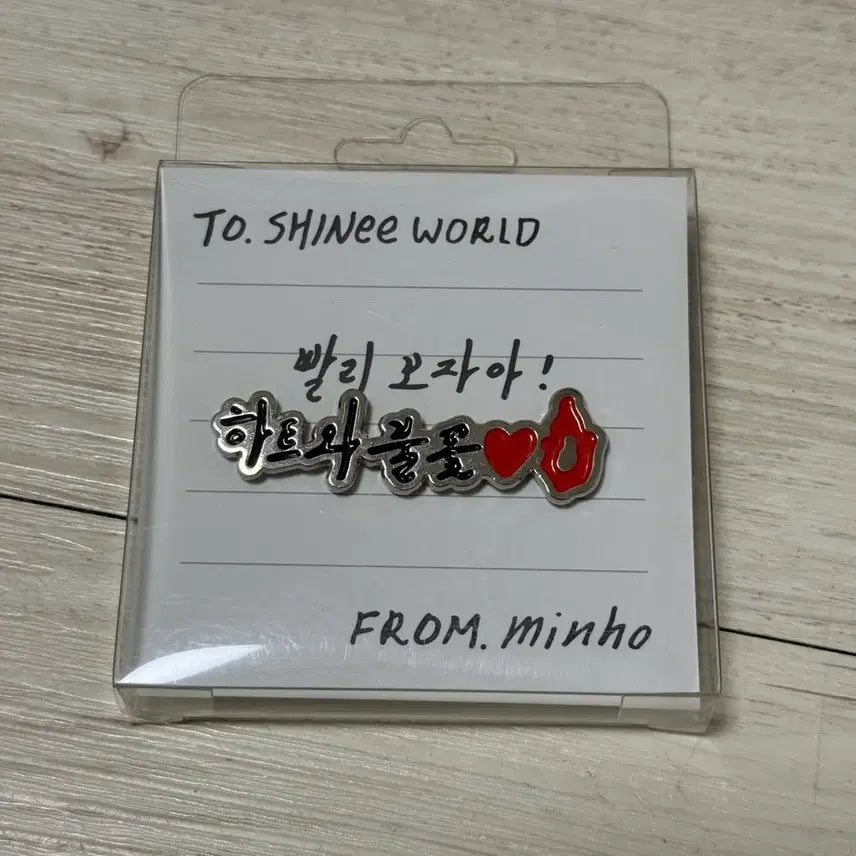 TO. SHINee WORLD
빨리 꼬자아!
하트와 불꽃
FROM. minho